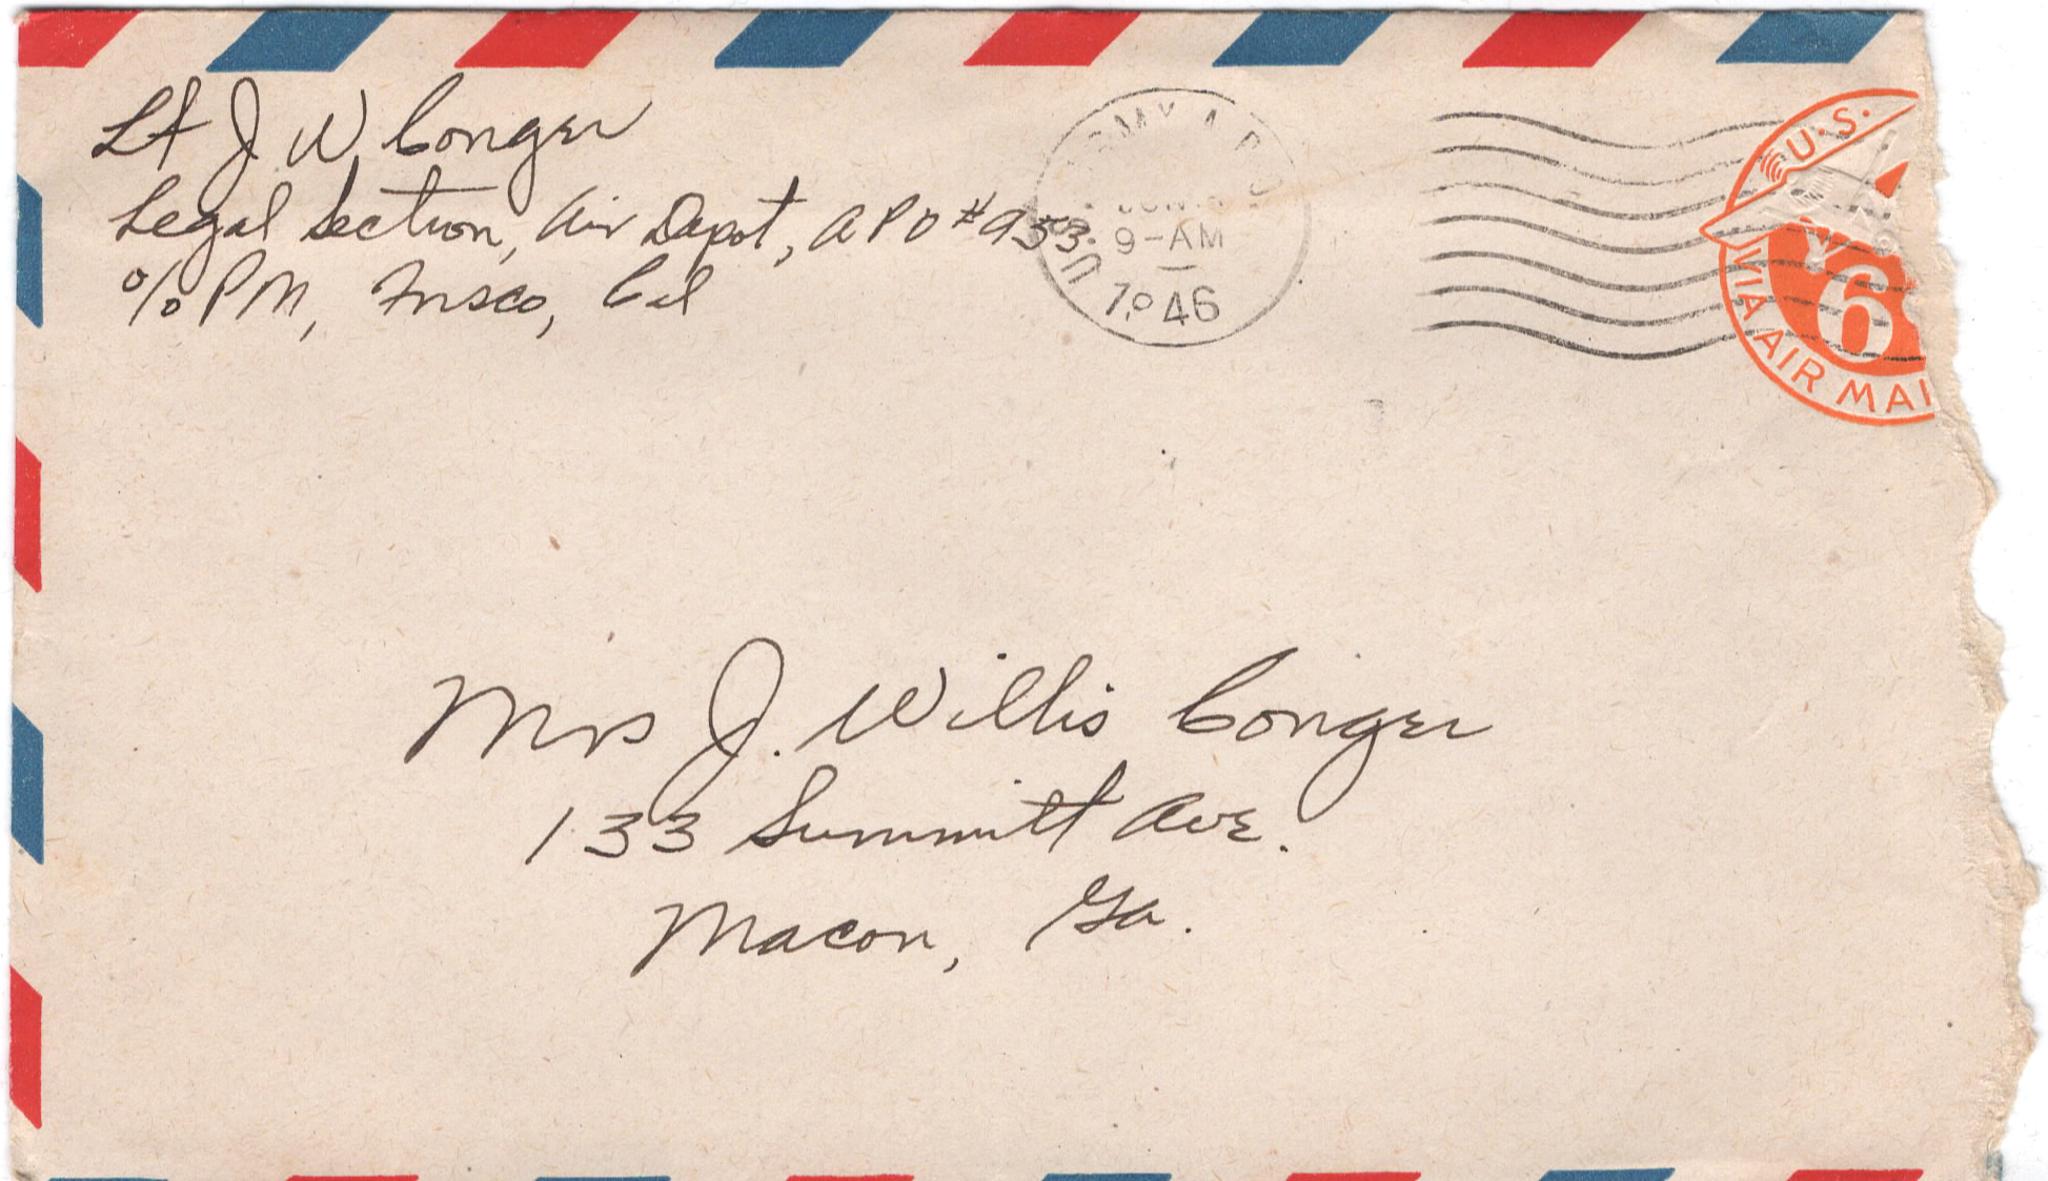 Lt J W Conger
Legal Section, Air Depot, APO #953
c/o PM, Frisco, Cal
U.S. ARMY A.P.O.
JUN
9-AM
1946
U.S.
6
VIA AIR MAI
Mrs J. Willis Conger
133 Summitt Ave.
Macon, Ga.